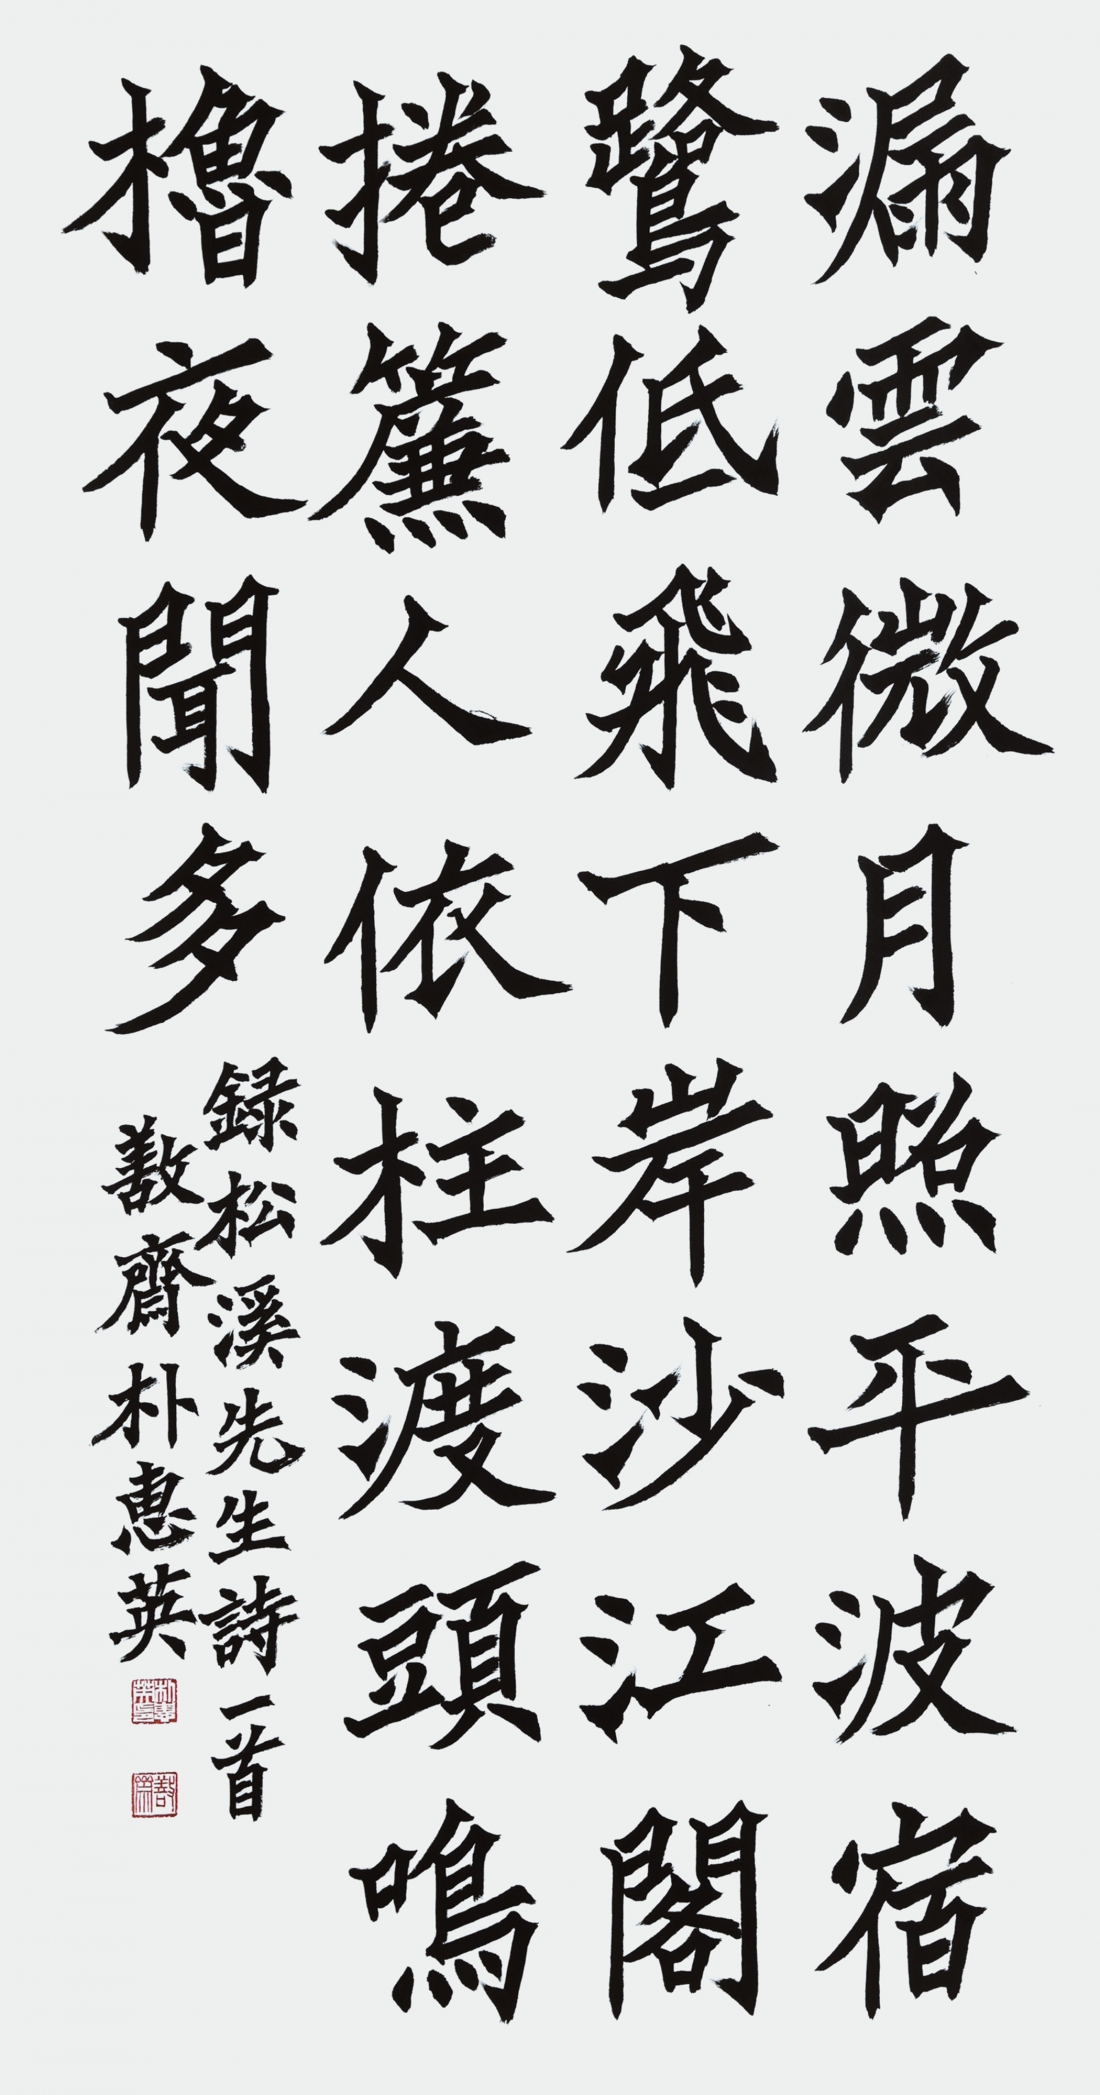 漏雲微月照平波宿
鷺低飛下岸沙江閣
捲簾人依柱渡頭鳴
櫓夜聞多
録松溪先生詩一首
齋朴惠英